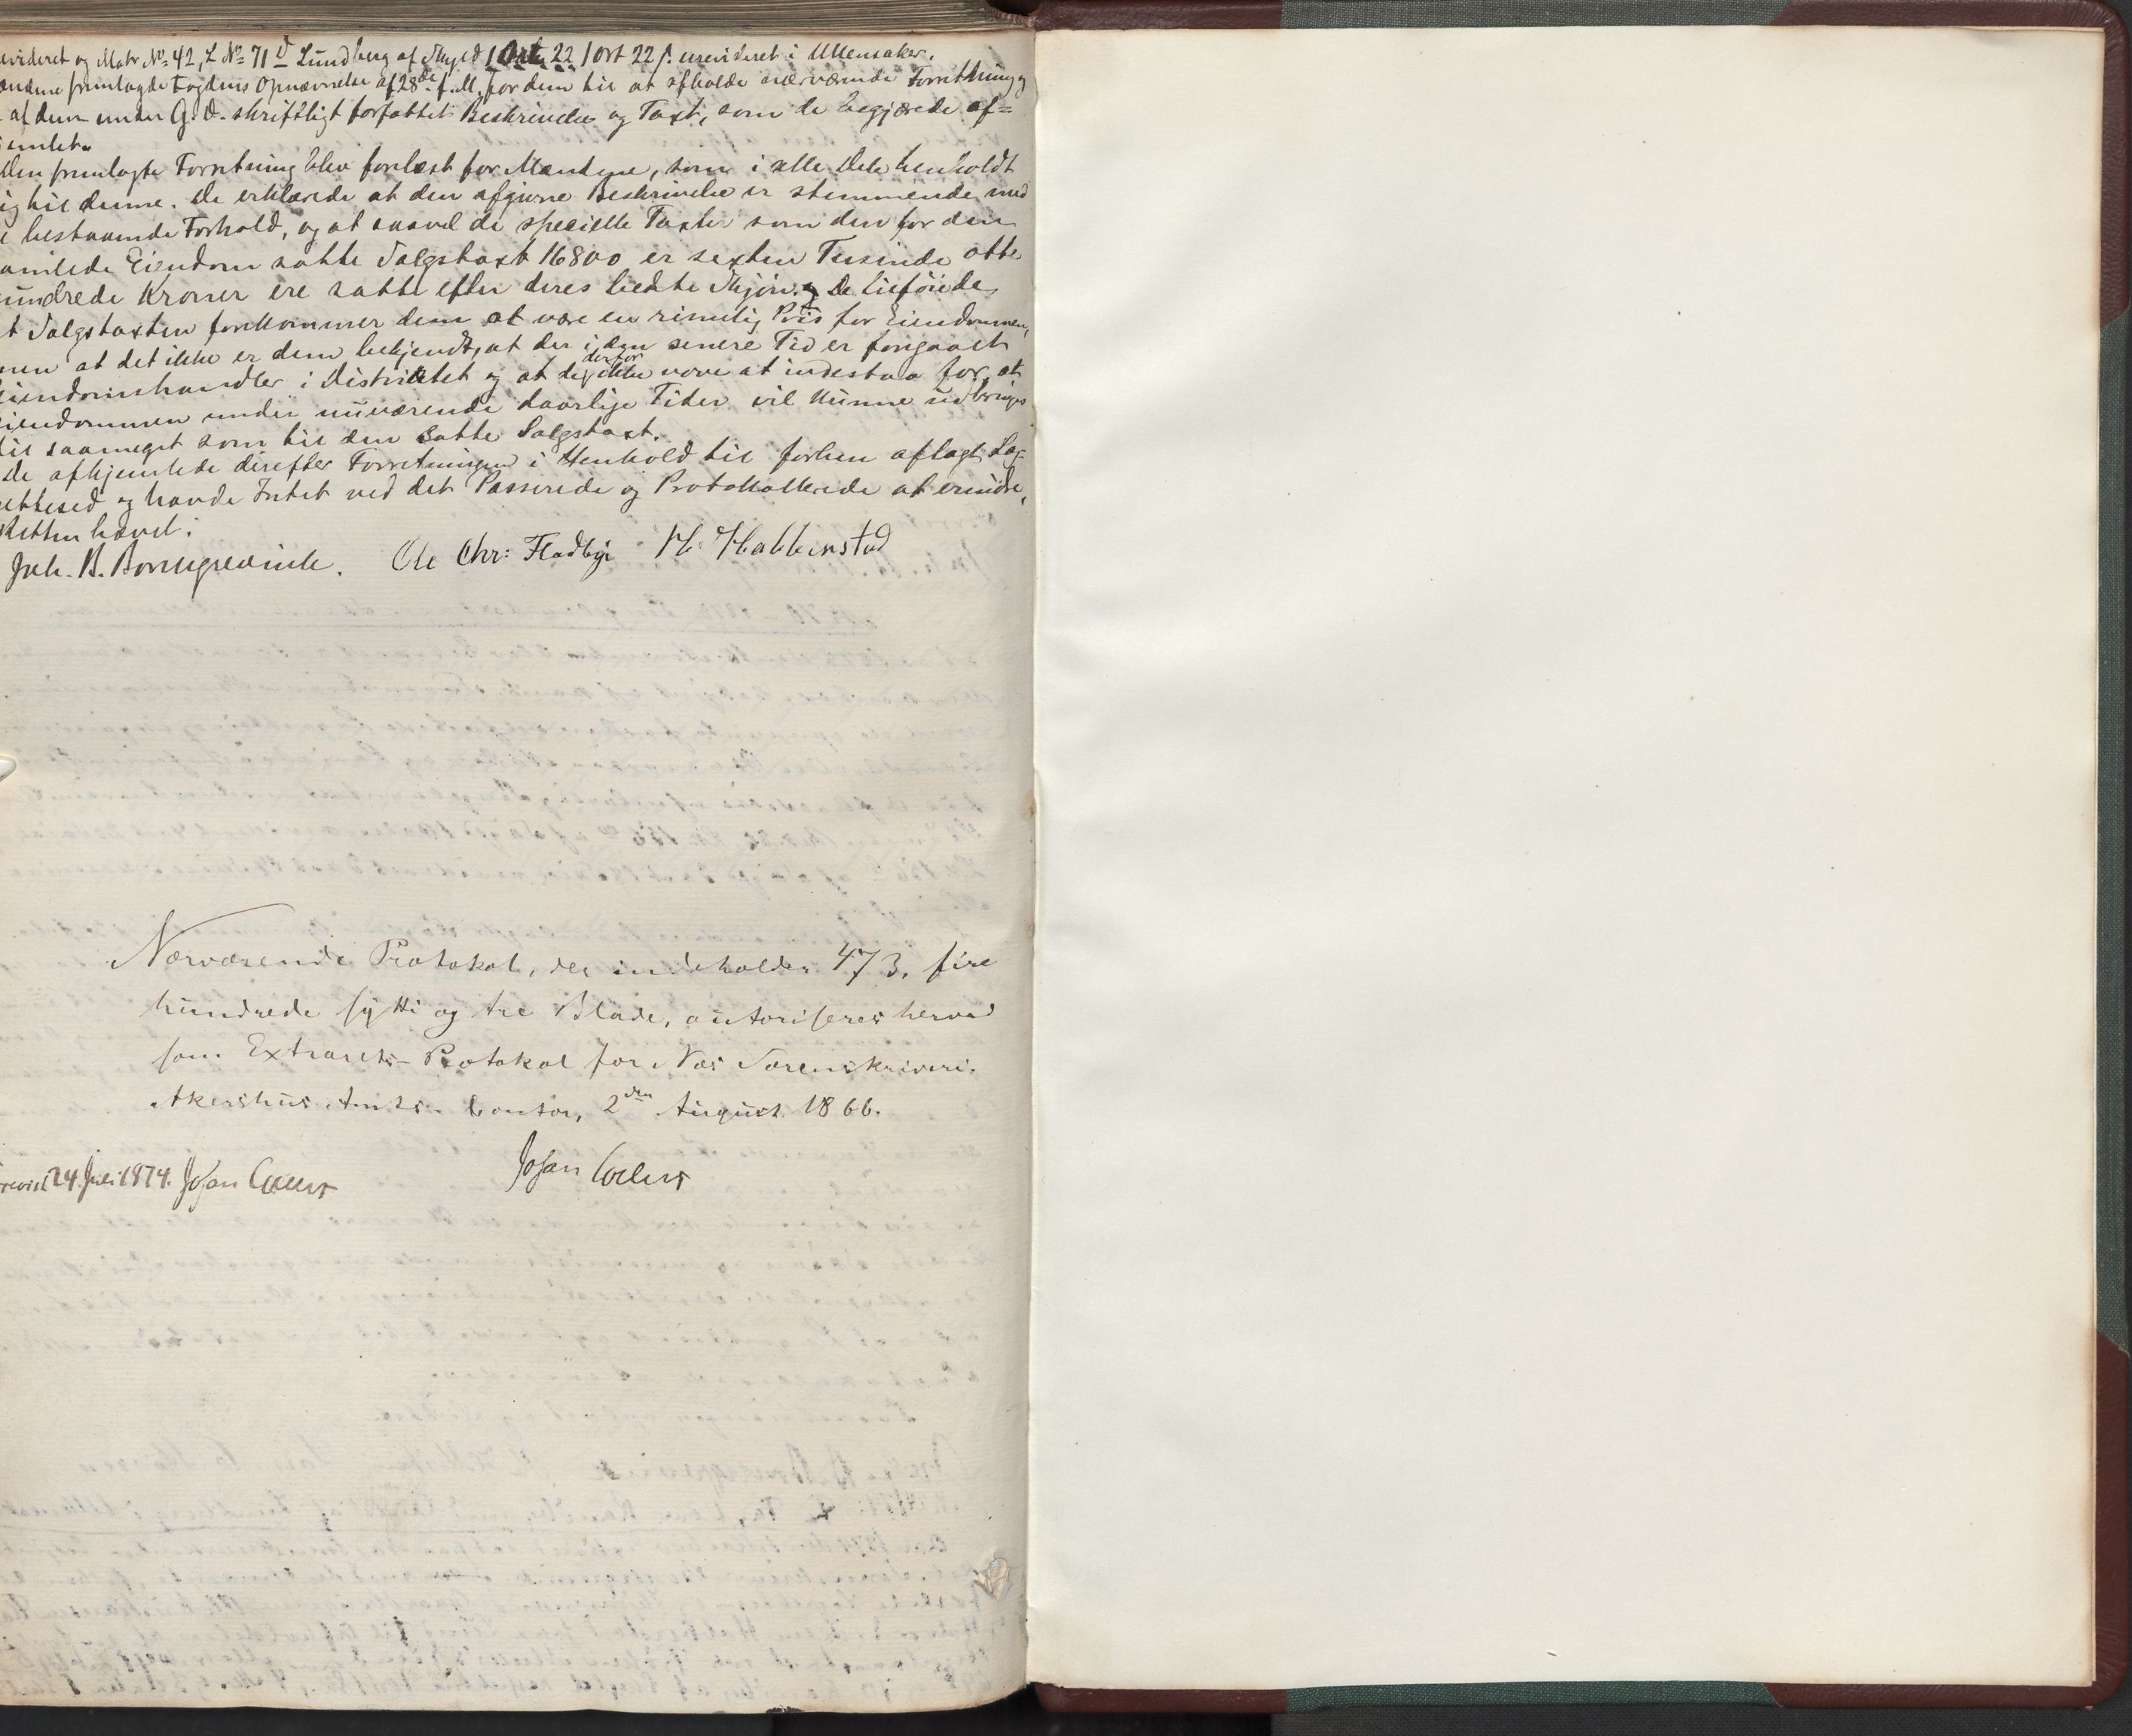 evideret og Matr № 42, L № 71 d Lundberg af Skyld 1 Ort 22 1 ort 22 β urevideret i Ullensaker.
ændene fremlagde Fogdens Opnævnelse af 28de f. M. for dem til at afholde nærværende Forretning og
af dem under G. D. skriftligt forfattet Beskrivelse og Taxt, som de begjærede af=
emlet.
Den fremlagte Forretning blev forelæst for Mændene, som i alle Dele henholdt
ig til denne. De erklærede at den afgivne Beskrivelse er stemmende med
e bestaaende Forhold, og at saavel de specielle Taxter som den for den
amlede Eiendom satte Salgstaxt 16800 er sexten Tusinde otte
undrede Kroner ere satte efter deres bedste Skjøn. De tilføiede
t Salgstaxten forekommer dem at være en rimelig Pris for Eiendommen,
men at det ikke er dem bekjendt, at der i den senere Tid er foregaaet
iendomshandler i Distriktet og at de derfor ikke vove at indestaa for, at
iendommen under nuværende daarlige Tider vil kunne udbringes
til saameget som til den satte Salgstaxt.
De afhjemlede derefter Forretningen i Henhold til forhen aflagt Lag-
rettesed og havde Intet ved det Passerede og Protokollerede at erindre,
Retten hævet.
Joh. B. Borchgrevink. Ole Chr: Fladbye H. Hakkenstad
Nærværende Protokol, der indeholder 473, fire
hundrede sytti og tre Blade, autoriseres herved
som Extrarets-Protokol for Næs Sorenskriveri.
Akershus Amts-Contor, 2den August 1866.
Johan Collett
revid. 24 Juli 1874. Johan Collett